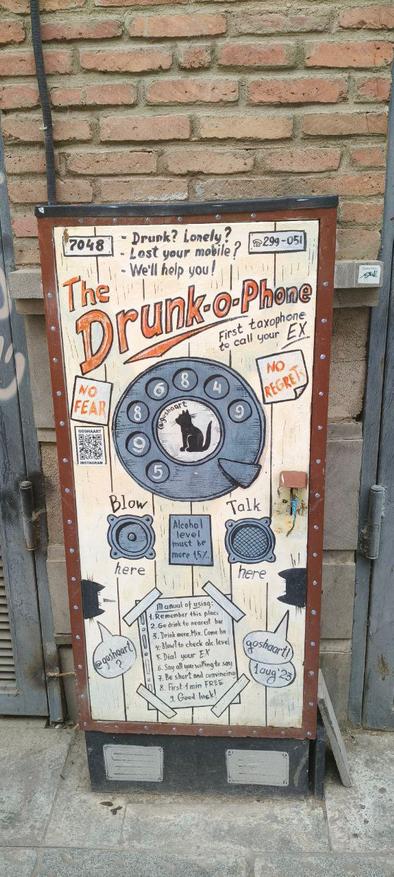 7048
- Drunk? Lonely?
- Lost your mobile?
- We'll help you!
☎299-051
The
Drunk-o-Phone
First taxophone
to call your EX
NO
FEAR
NO
REGRETS
6 8 4
8 9
9
5
@goshaart
GOSHAART
INSTAGRAM
Blow
here
Alcohol
level
must be
more 15%
Talk
here
Manual of using:
1. Remember this place
2. Go drink to nearest bar
3. Drink more. Mix. Come back
4. Blow! to check alc. level
5. Dial your EX
6. Say all you willing to say
7. Be short and convincing
8. First 1 min FREE
9. Good luck!
@goshaart
?
goshaart!
1 aug'23